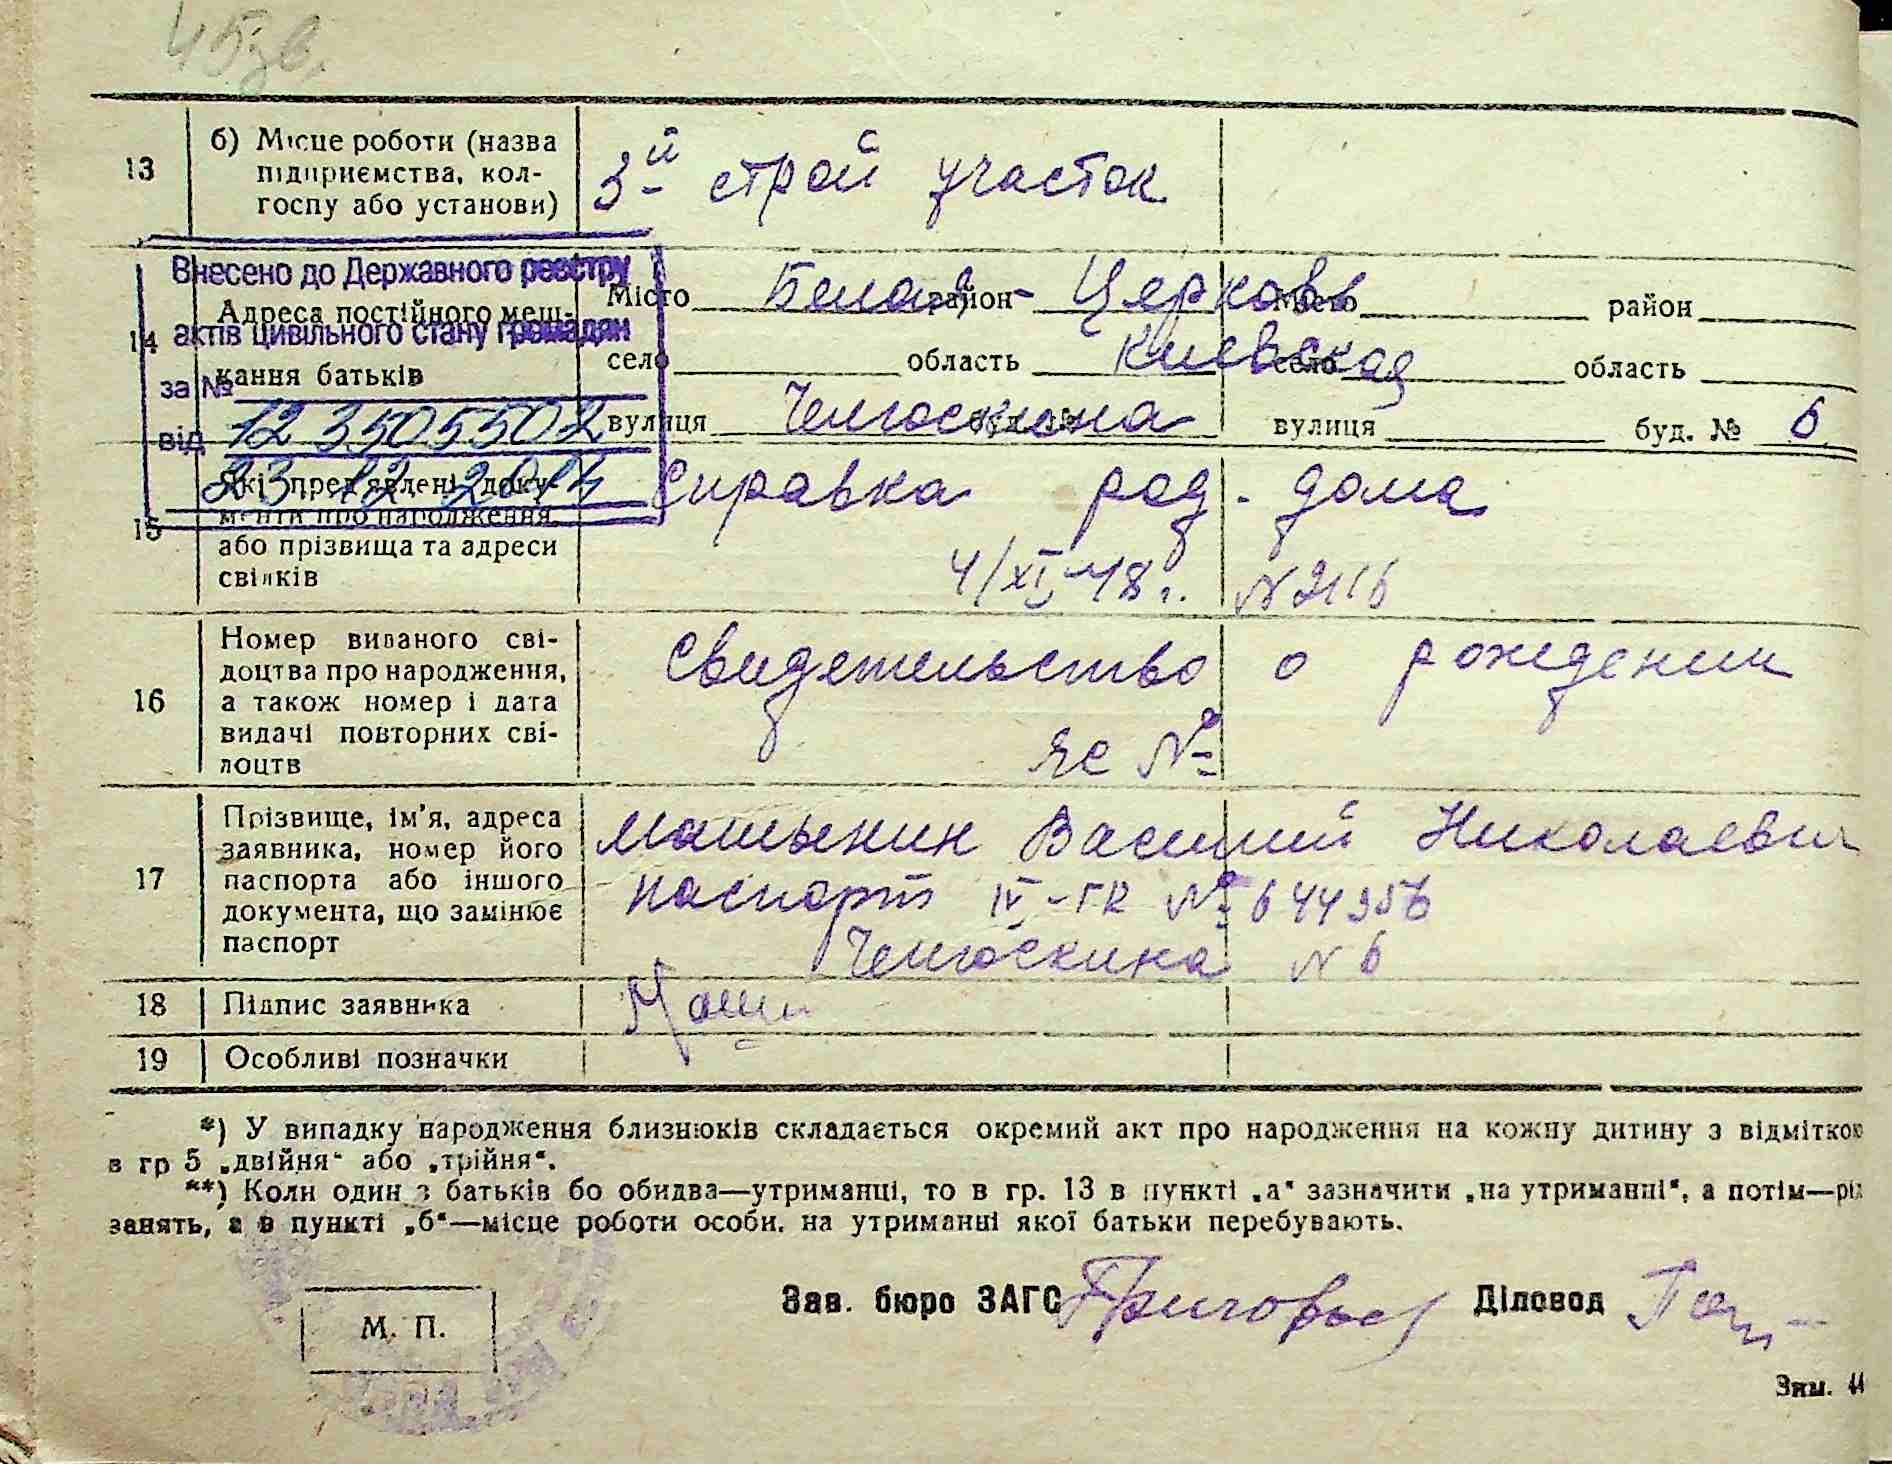 45зв.
13
б) Місце роботи (назва
підприємства, кол-
госпу або установи)
3й строй участок
Внесено до Державного реєстру
актів цивільного стану громадян
за №
12 350 5502
від
23 12 2014
14
Адреса постійного меш-
кання батьків
Місто Белая район - Церковь
село область Киевская
вулиця Челюскина
Місто район
село область
вулиця буд. № 6
15
Які пред'явлені доку-
менти про народження
або прізвища та адреси
свідків
Справка род - дома
4/XI-48г. N 2116
16
Номер виданого сві-
доцтва про народження,
а також номер і дата
видачі повторних сві-
доцтв
Свидетельство о рождении
ЯС №
17
Прізвище, ім'я, адреса
заявника, номер його
паспорта або іншого
документа, що замінює
паспорт
Матынин Василий Николаевич
паспорт IV-ГК № 644956
Челюскина N 6
18
Підпис заявника
19
Особливі позначки
*) У випадку народження близнюків складається окремий акт про народження на кожну дитину з відміткою
в гр 5 „двійня“ або „трійня“.
**) Коли один з батьків бо обидва—утриманці, то в гр. 13 в пункті „а“ зазначити „на утриманні“, а потім—рід
занять, а в пункті „б“—місце роботи особи, на утриманні якої батьки перебувають.
М. П.
Зав. бюро ЗАГС Діловод
Зам. 44